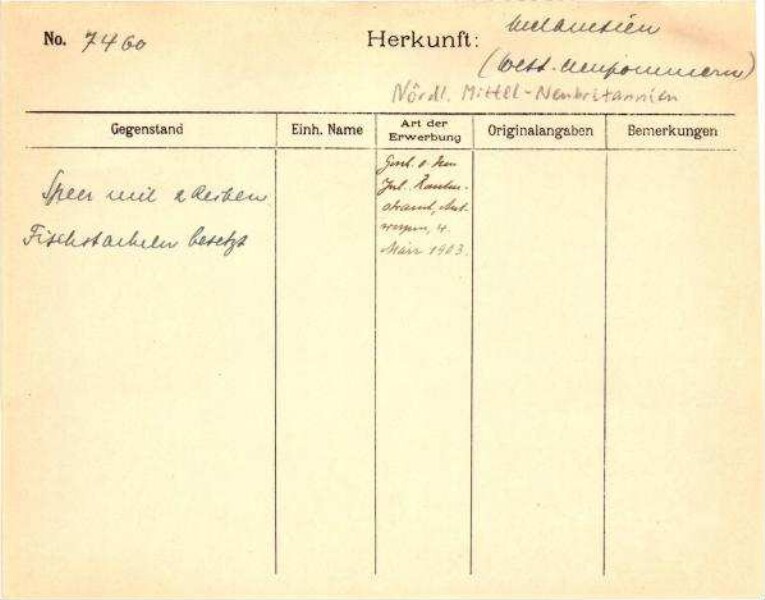 No. 7460
Herkunft: Melanesien
(West-Neupommern)
Nördl. Mittel-Neubritannien
Gegenstand
Einh. Name
Art der Erwerbung
Originalangaben
Bemerkungen
Speer mit 2 Reihen
Fischstacheln besetzt
Gesch. v.
Jul.
Ant-
werpen, 4.
März 1903.